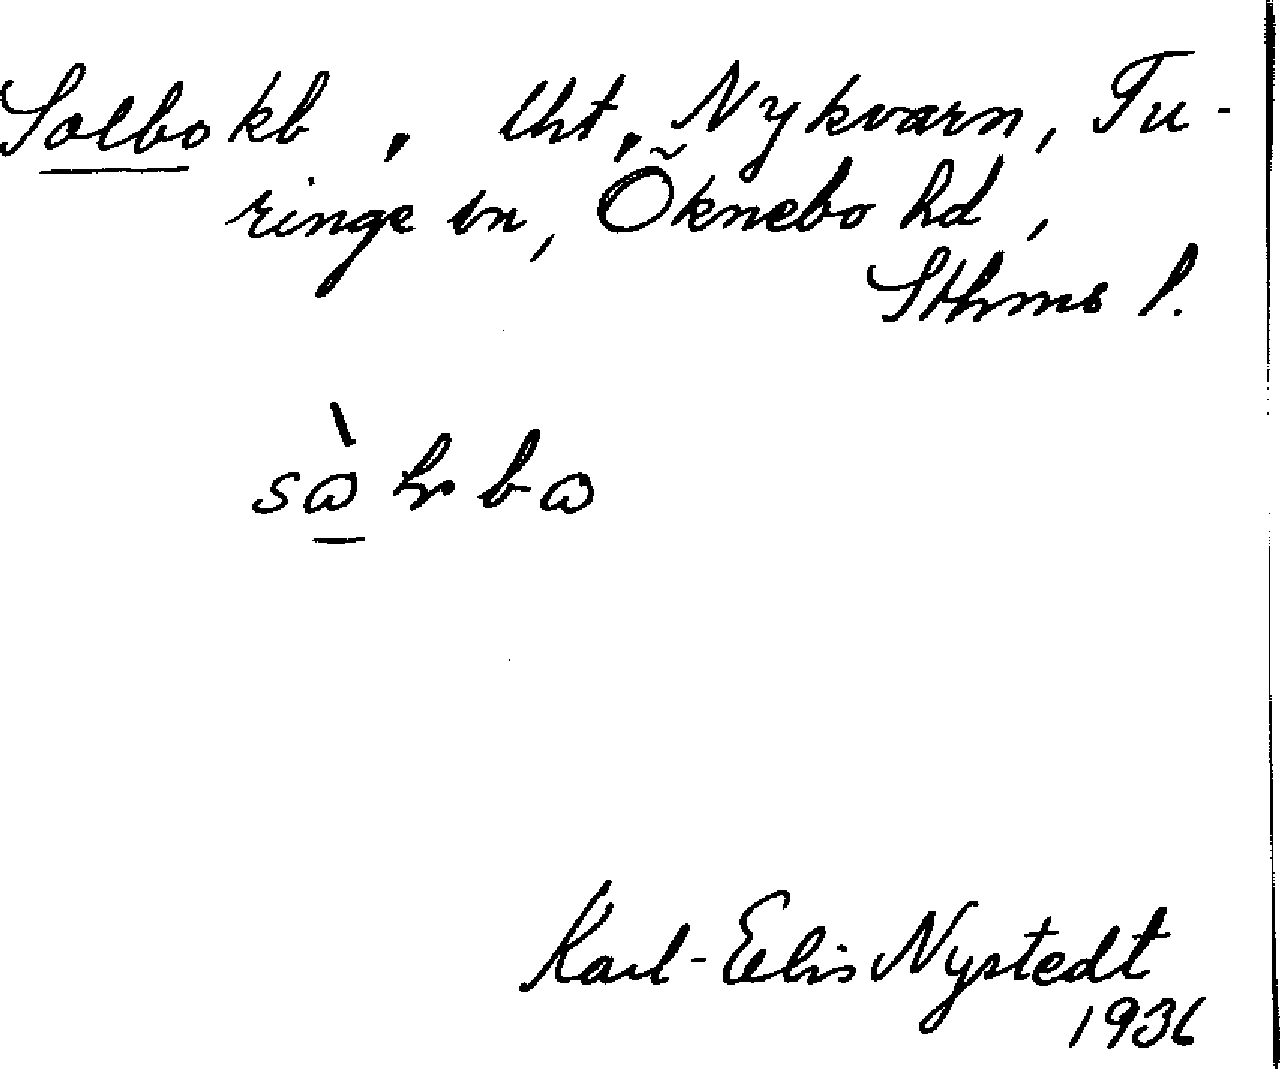 Solbo kb, lht, Nykvarn, Tu-
ringe sn, Öknebo hd,
Sthms l.
Karl-Elis Nystedt
1936